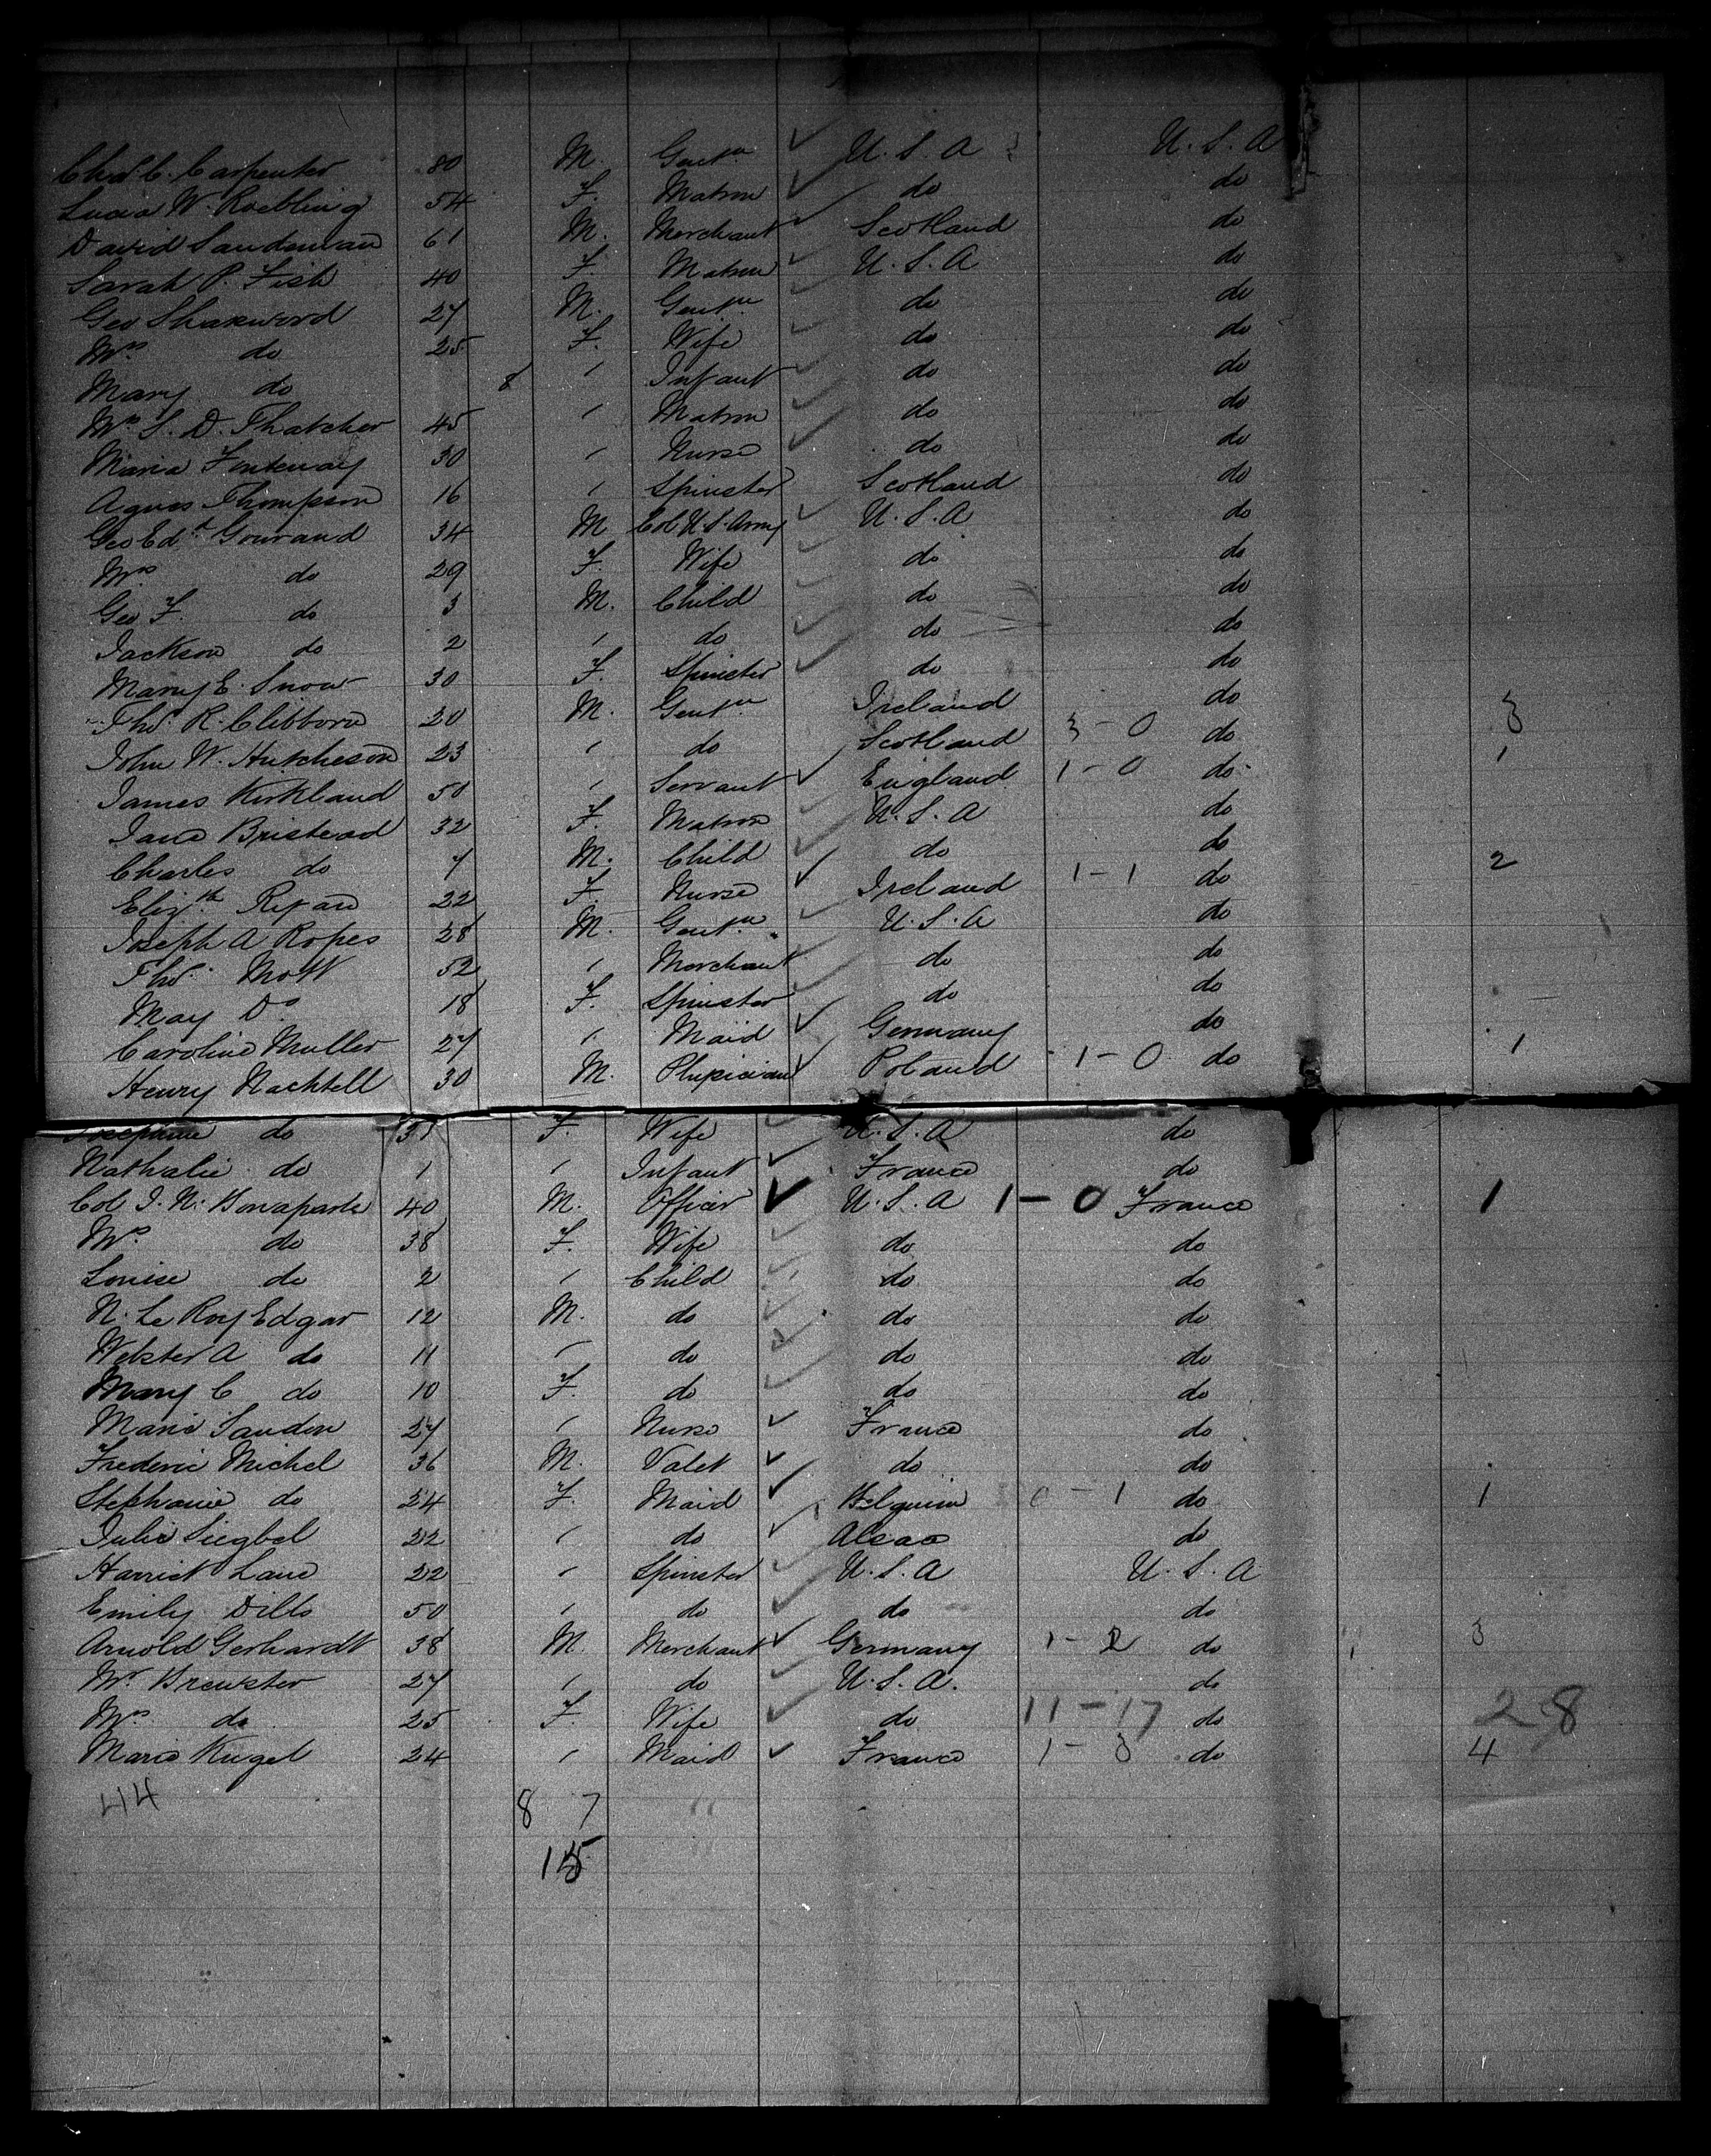 Chas. C. Carpenter 80 M. Gentn U.S.A U.S.A
W. Roebling 54 F. Matron do do
David Sandeman 61 M. Merchant Scotland do
Sarah P. Fish 40 F. Matron U.S.A do
Geo Sharwood 27 M. Gentn do do
Mrs do 25 F. Wife do do
Mary do 8 " Infant do do
Mrs S. D. Thatcher 45 " Matron do do
Maria 30 " Nurse do do
Agnes Thompson 16 " Spinster Scotland do
Geo Edd Gouraud 34 M Col U.S. Army U.S.A do
Mrs do 29 F. Wife do do
Geo F. do 3 M. Child do do
Jackson do 2 " do do do
Mary E. Snow 30 F. Spinster do do
Thos R. Clibborn 20 M. Gentn Ireland do 3
John W. Hutcheson 23 " do Scotland 3-0 do 1
James Kirkland 50 " Servant England 1-0 do
Jane Bristead 32 F. Matron U.S.A do
Charles do 7 M. Child do do 2
Elizth 22 F. Nurse Ireland 1-1 do
Joseph A Ropes 28 M. Gentn U.S.A do
Thos. Mott 52 " Merchant do do
May Do 18 F. Spinster do do
Caroline Muller 27 " Maid Germany do 1
Henry Nachtell 30 M. Phipician Poland 1-0 do
Josephine do 31 F. Wife U.S.A do
Nathalie do 1 " Infant France do
Col J. N. Bonaparte 40 M. Officer U.S.A 1-0 France 1
Mrs do 38 F. Wife do do
Louise do 2 " Child do do
N. Le Roy Edgar 12 M. do do do
Webster A do 11 " do do do
Mary C do 10 F. do do do
Marie Sandon 27 " Nurse France do
Frederic Michel 36 M. Valet do do
Stephanie do 24 F. Maid Belguim 0-1 do 1
Julie Siegbel 22 " do Alsace do
Harriet Lane 22 " Spinster U.S.A U.S.A
Emily Dilts 50 " do do do
Arnold Gerhardt 38 M. Merchant Germany 1-2 do 3
Mr Brewster 27 " do U.S.A. do
Mrs do 25 F. Wife do 11-17 do 28
Marie Kugel 24 " Maid France 1-3 do 4
44 8 7 "
15 "